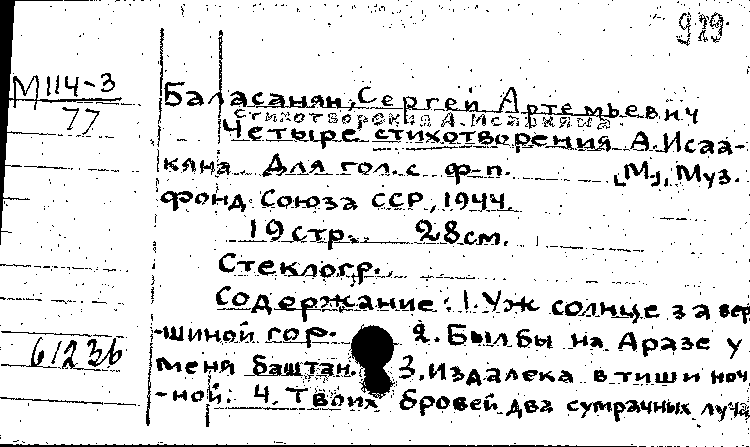 929
М114-3
77
Баласанян, Сергей Артемьевич
Стихотворения А. Исаакяна
Четыре стихотворения А.Исаа-
кяна. Для гол. с ф-п. [М], Муз.
фонд Союза ССР, 1944.
19 стр. 28 см.
Стеклогр.
Содержание: 1. Уж солнце за вер
-шиной гор. 2. Был бы на Аразе у
меня баштан. 3. Издалека в тиши ноч
-ной. 4. Твоих бровей два сумрачных луча
61236